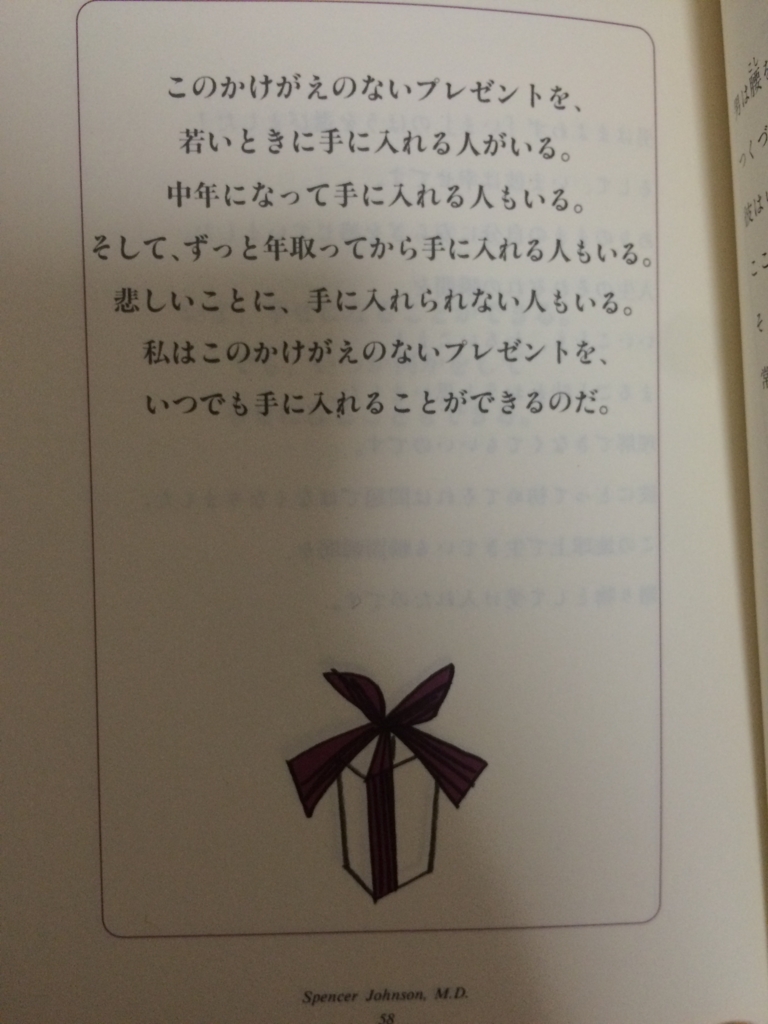 このかけがえのないプレゼントを、
若いときに手に入れる人がいる。
中年になって手に入れる人もいる。
そして、ずっと年取ってから手に入れる人もいる。
悲しいことに、手に入れられない人もいる。
私はこのかけがえのないプレゼントを、
いつでも手に入れることができるのだ。
Spencer Johnson, M.D.
58